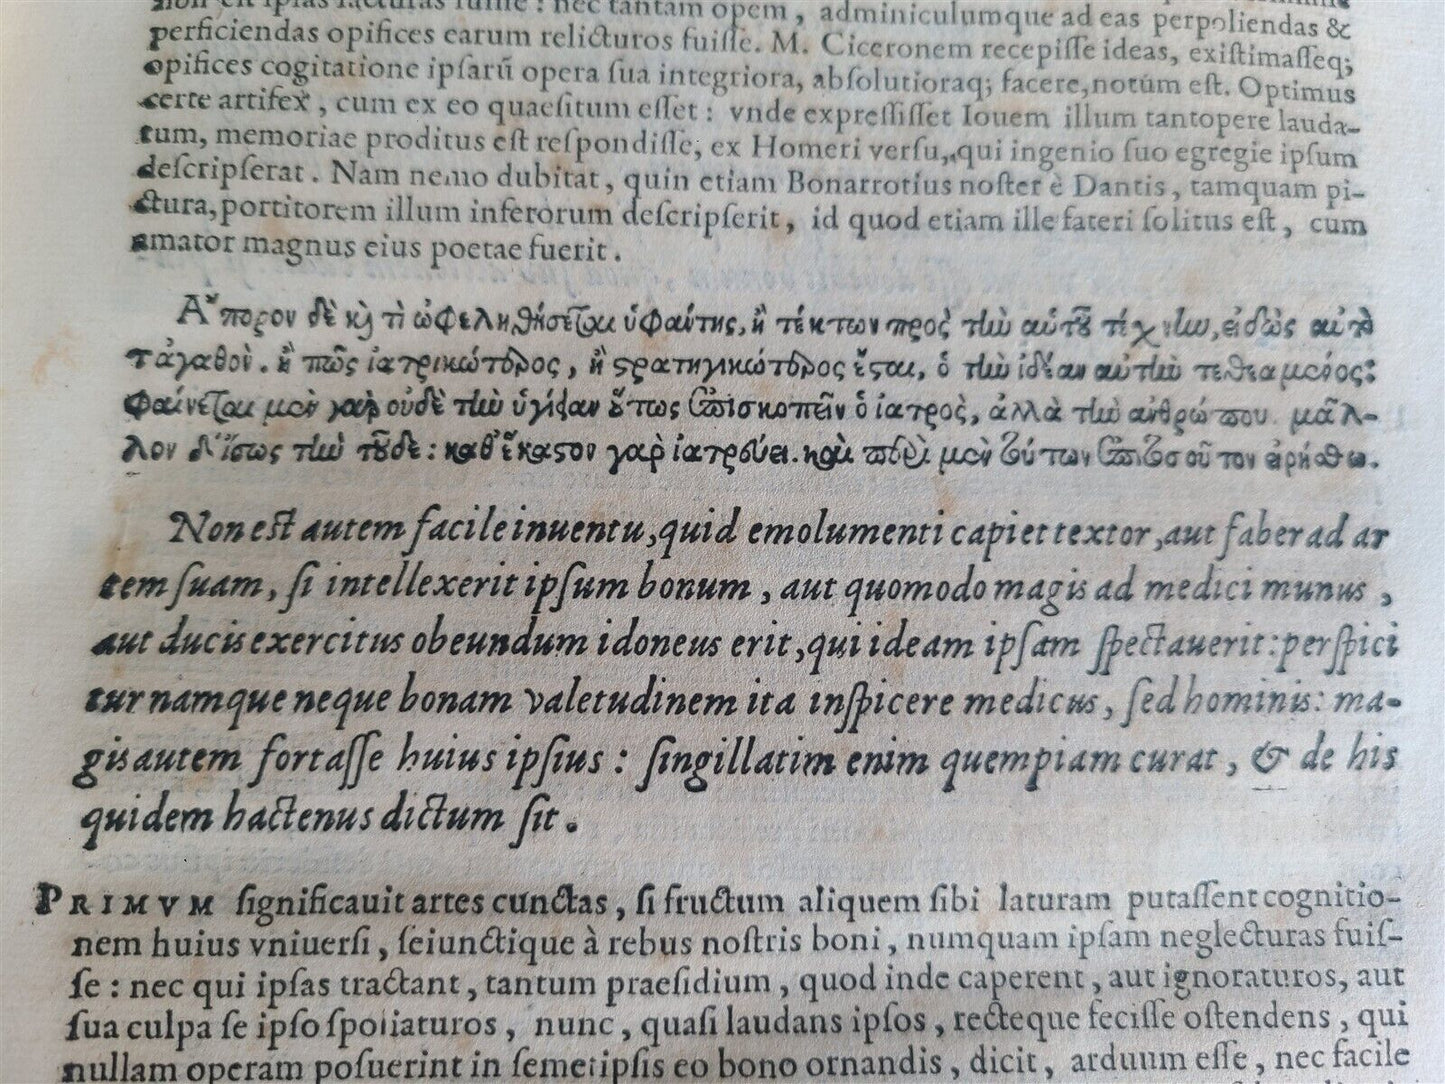 perficiendas opifices earum relicturos fuiſſe. M. Ciceronem recepiſſe ideas, exiſtimaſſeq;
opifices cogitatione ipſarū opera ſua integriora, abſolutioraq; facere, notum eſt. Optimus
certe artifex, cum ex eo quaeſitum eſſet: vnde expreſſiſſet Iouem illum tantopere lauda-
tum, memoriae proditus eſt reſpondiſſe, ex Homeri verſu, qui ingenio ſuo egregie ipſum
deſcripſerat. Nam nemo dubitat, quin etiam Bonarrotius noſter è Dantis, tamquam pi-
ctura, portitorem illum inferorum deſcripſerit, id quod etiam ille fateri ſolitus eſt, cum
amator magnus eius poetae fuerit.
Ἄπορον δὲ κὶ τὶ ὠφεληθήσεται ὑφαύτης, ἢ τέκτων πρὸς τὴν αὑτοῦ τέχνην, εἰδὼς αὐτὸ
τἀγαθὸν. ἢ πῶς ἰατρικώτερος, ἢ στρατηγικώτερος ἔσται, ὁ τὴν ἰδέαν αὐτὴν τεθεαμένος:
φαίνεται μὲν γὰρ οὐδὲ τὴν ὑγίειαν οὕτως ἐπισκοπεῖν ὁ ἰατρὸς, ἀλλὰ τὴν ἀνθρώπου. μᾶλ-
λον δ' ἴσως τὴν τοῦδε: καθ' ἕκαστον γὰρ ἰατρεύει. καὶ περὶ μὲν τούτων ἐπιτοσοῦτον εἰρήσθω.
Non eſt autem facile inuentu, quid emolumenti capiet textor, aut faber ad ar
tem ſuam, ſi intellexerit ipſum bonum, aut quomodo magis ad medici munus,
aut ducis exercitus obeundum idoneus erit, qui ideam ipſam ſpectauerit: perſpici
tur namque neque bonam valetudinem ita inſpicere medicus, ſed hominis: ma-
gis autem fortaſſe huius ipſius: ſingillatim enim quempiam curat, & de his
quidem hactenus dictum ſit.
PRIMVM ſignificauit artes cunctas, ſi fructum aliquem ſibi laturam putaſſent cognitio-
nem huius vniuerſi, ſeiunctique à rebus noſtris boni, numquam ipſam neglecturas fuiſ-
ſe: nec qui ipſas tractant, tantum praeſidium, quod inde caperent, aut ignoraturos, aut
ſua culpa ſe ipſo ſpoliaturos, nunc, quaſi laudans ipſos, recteque feciſſe oſtendens, qui
nullam operam poſuerint in ſemetipſis eo bono ornandis, dicit, arduum eſſe, nec facile